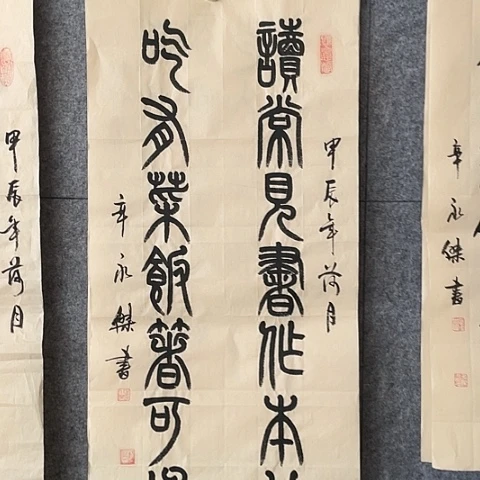 辛永傑書
甲辰年荷月
讀常見書作本
吃有菜飯著可
辛永傑書
甲辰年荷月